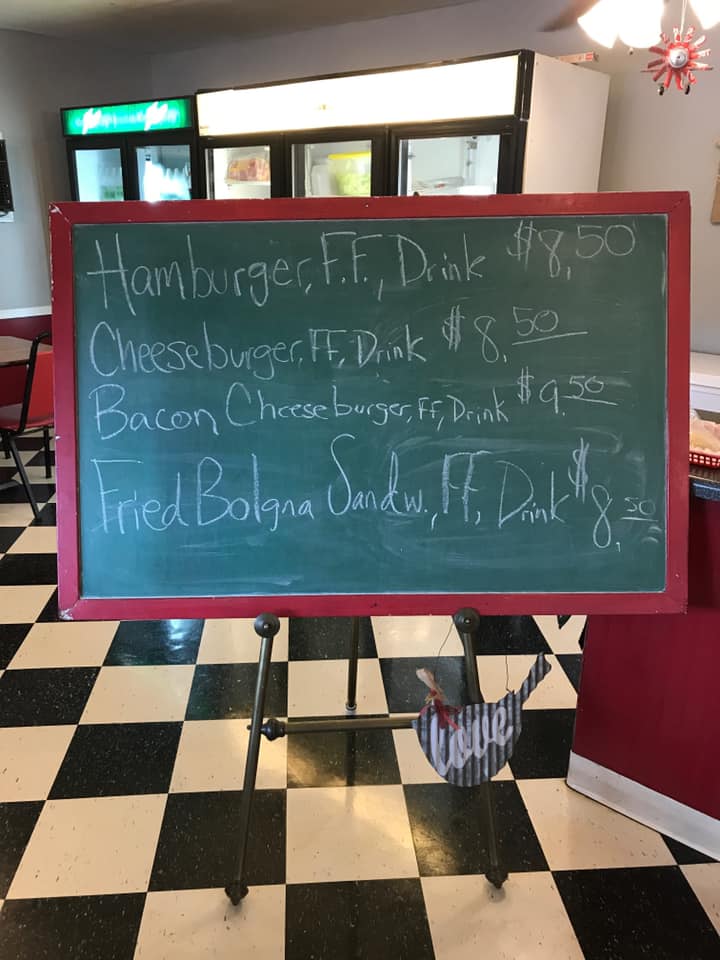 Hamburger, F.F., Drink $8.50
Cheeseburger, FF, Drink $8.50
Bacon Cheeseburger, FF, Drink $9.50
Fried Bologna Sandw., FF, Drink $8.50
love